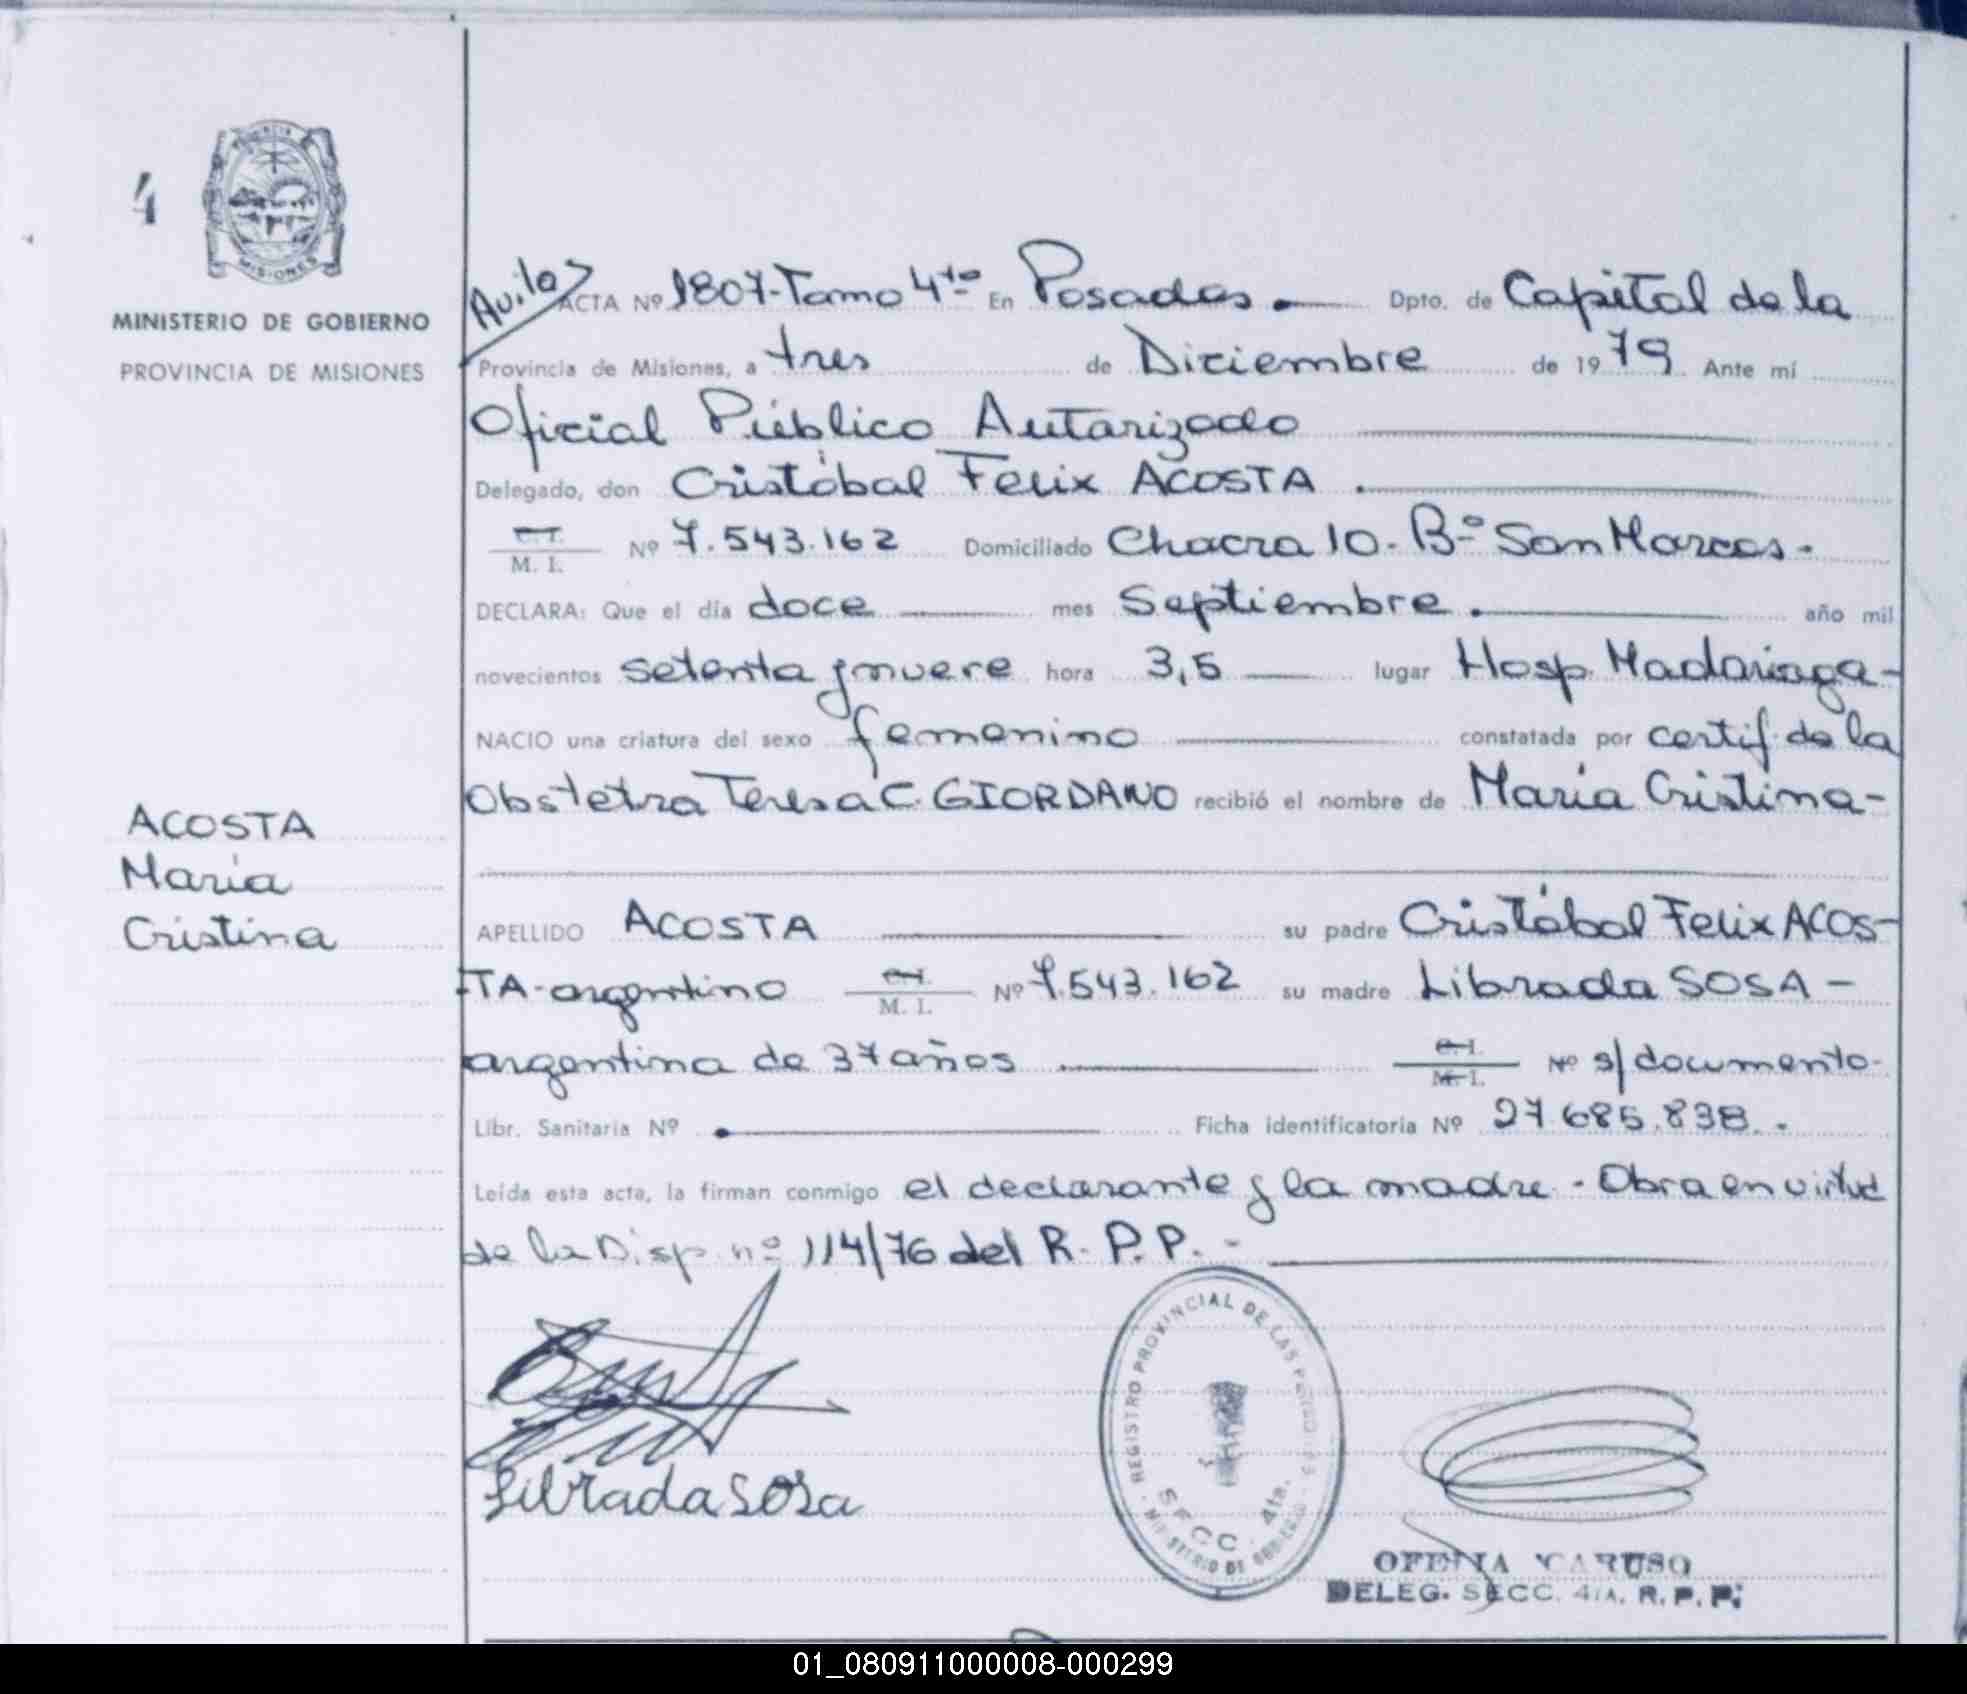 4
MINISTERIO DE GOBIERNO
PROVINCIA DE MISIONES
ACOSTA
María
Cristina
ACTA Nº 1807-Tomo 4to En Posadas. Dpto. de Capital de la
Provincia de Misiones, a tres de Diciembre de 1979 Ante mí
Oficial Público Autorizado
Delegado, don Cristóbal Felix ACOSTA.
C.I.
M. I. Nº 7.543.162 Domiciliado Chacra 10. Bº San Marcos-
DECLARA: Que el día doce mes Septiembre. año mil
novecientos setenta y nueve hora 3,5 lugar Hosp. Madariaga-
NACIO una criatura del sexo femenino constatada por certif. de la
Obstetra Teresa C. GIORDANO recibió el nombre de María Cristina-
APELLIDO ACOSTA su padre Cristóbal Felix ACOS-
TA-argentino C.I. M. I. Nº 7.543.162 su madre Librada SOSA-
argentina de 37 años C.I. M.I. Nº s/documento-
Libr. Sanitaria Nº Ficha identificatoria Nº 27.685.838.-
Leída esta acta, la firman conmigo el declarante y la madre.- Obra en virtud
de la Disp. nº 114/76 del R.P.P.-
Librada Sosa
REGISTRO PROVINCIAL DE LAS PERSONAS
SECC. 4ta.
MINISTERIO DE GOBIERNO
OFELIA CARUSO
DELEG. SECC. 4TA. R.P.P.
01_080911000008-000299